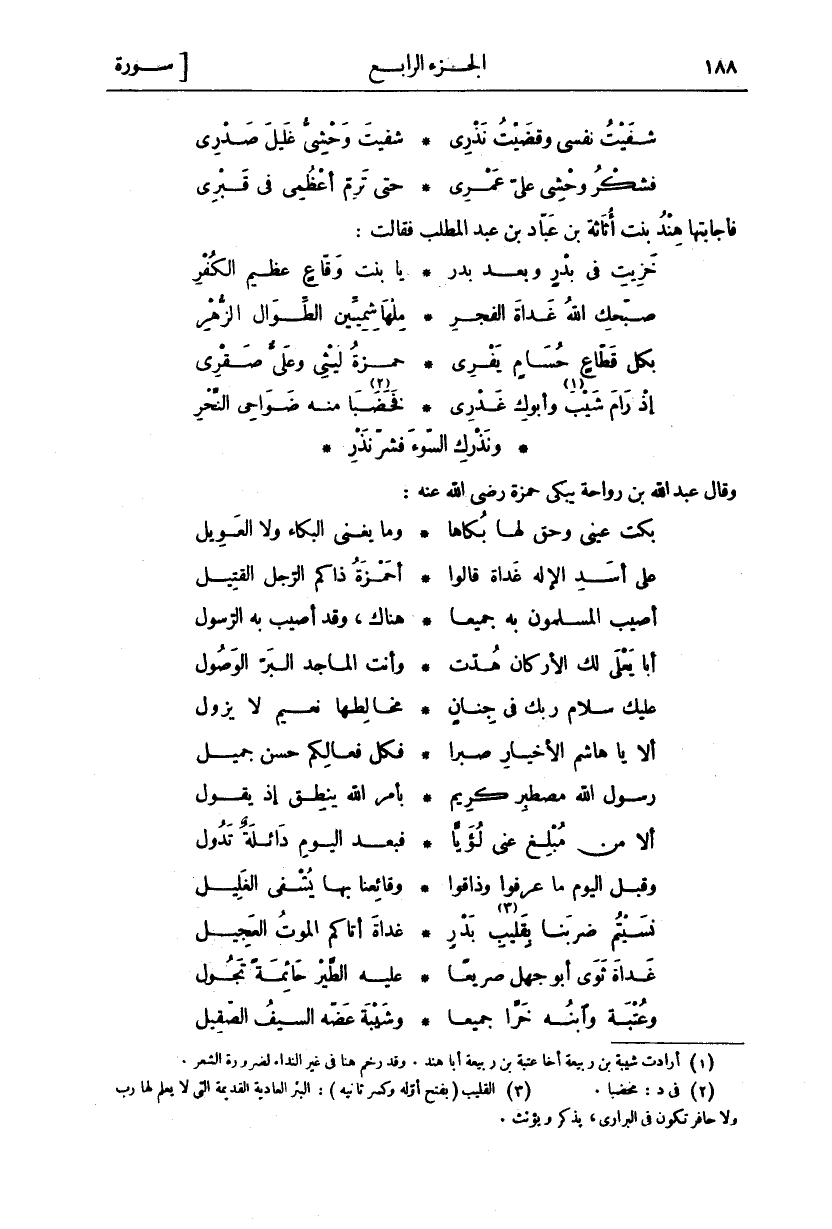 ١٨٨ الجزء الرابع [ سورة
شفَيْتُ نفسى وقضَيْتُ نَذْرِى * شفيتَ وَحْشِىُّ غَلِيلَ صَدْرِى
فشكْرُ وحْشِى علىّ عَمْرِى * حتى تَرِمّ أعْظُمِى فى قَبْرِى
فأجابتها هِنْدُ بنت أُثَاثة بن عَبّاد بن عبد المطلب فقالت :
خَزِيتِ فى بدْرٍ وبعــد بدر * يا بنت وَقّاعٍ عظيم الكُفْرِ
صبّحك اللهُ غَداةَ الفجرِ * مِلْهَاشِمِيِّين الطِّوَال الزُّهْرِ
بكل قَطّاعٍ حُسَامٍ يَفْرِى * حمزةُ ليْثِى وعلىُّ صَقْرِى
إذْ رَامَ شَيْبَ (١) وأبوكِ غَدْرِى * فَخَضَّبَا (٢) منه ضَوَاحِى النَّحْرِ
* ونَذْركِ السّوءَ فشرّ نَذْرِ *
وقال عبد الله بن رواحة يبكى حمزة رضى الله عنه :
بكت عينى وحق لها بُكاها * وما يغنى البكاء ولا العَوِيل
على أسَدِ الإله غَداة قالوا * أحَمْزَةُ ذاكم الرّجل القتيل
أصيب المسلمون به جميعا * هناك ، وقد أصيب به الرّسول
أبا يَعْلَى لك الأركان هُدّت * وأنت الماجد البَرّ الوَصُول
عليك سلام ربك فى جِنانٍ * مخالِطها نعيم لا يزول
ألا يا هاشم الأخيارِ صبرا * فكل فعالِكم حسن جميل
رسول الله مصطبِر كريم * بأمر الله ينطِق إذ يقول
ألا من مُبْلِغ عنى لُؤَيًّا * فبعد اليومِ دَائلةٌ تَدُول
وقبل اليوم ما عرفوا وذاقوا * وقائعنا بها يُشْفى الغَلِيل
نسَيْتُم ضربَنا بِقَلِيبِ (٣) بَدْرٍ * غداةَ أتاكم الموتُ العَجِيل
غَداة ثَوَى أبو جهل صرِيعًا * عليه الطَّيْر حَائمةً تَجُول
وعُتْبَة وآبنُه خَرَّا جميعا * وشَيْبَة عَضّه السيفُ الصّقِيل
(١) أرادت شيبة بن ربيعة أخا عتبة بن ربيعة أبا هند . وقد رخم هنا فى غير النداء لضرورة الشعر .
(٢) فى د : مخضبا . (٣) القليب ( بفتح أوّله وكسر ثانيه ) : البئر العادية القديمة التى لا يعلم لها رب
ولا حافر تكون فى البرارى ، يذكر ويؤنث .